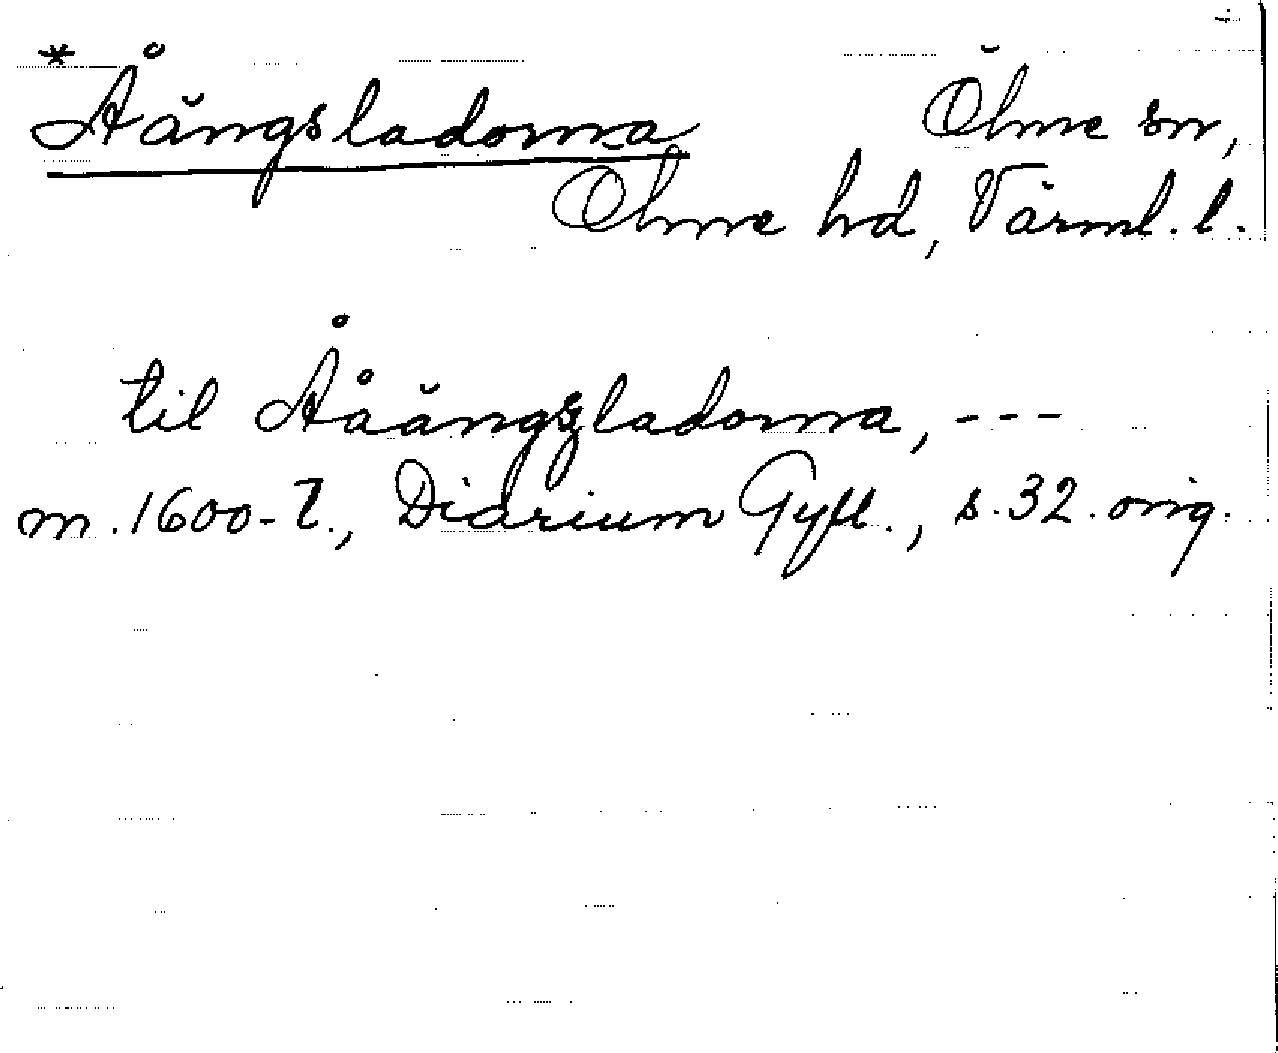 *Åängsladorna Ölme sn,
Ölme hd, Värml. l.
til Ååängszladorna, ---
m. 1600-t., Diarium Gyll., s. 32. orig.